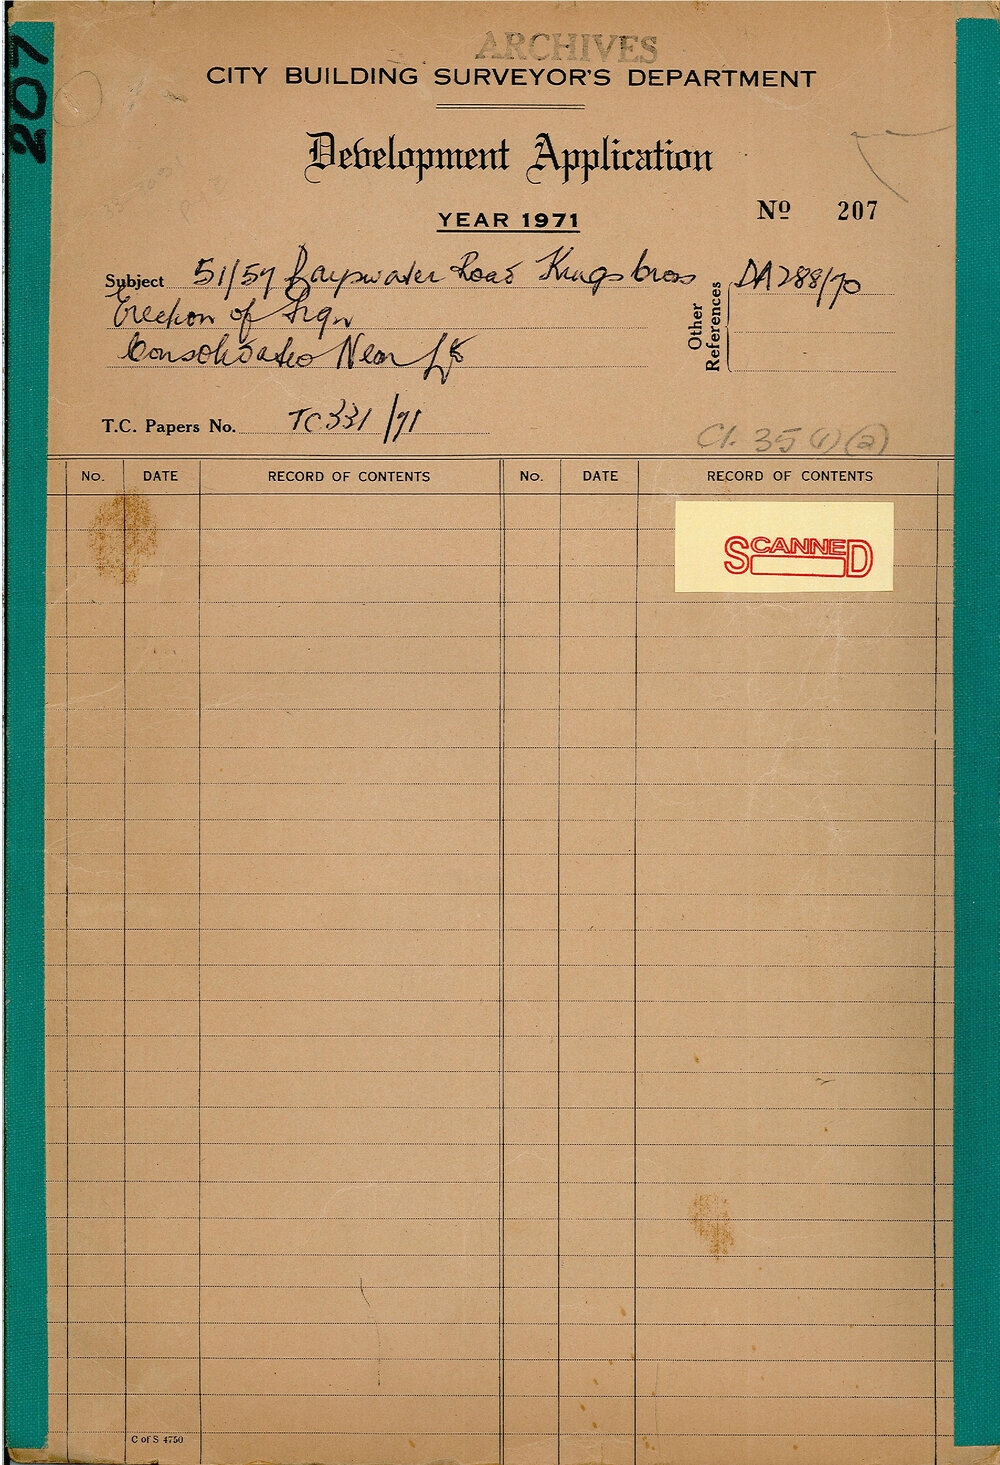 207
ARCHIVES
CITY BUILDING SURVEYOR'S DEPARTMENT
Development Application
YEAR 1971
No 207
Subject 51/57 Bayswater Road Kings Cross
Erection of Sign
Consolidated Neon
Other References DA 288/70
T.C. Papers No. TC 331/71
Cl. 35 (1) (a)
No. DATE RECORD OF CONTENTS No. DATE RECORD OF CONTENTS
SCANNED
C of S 4750